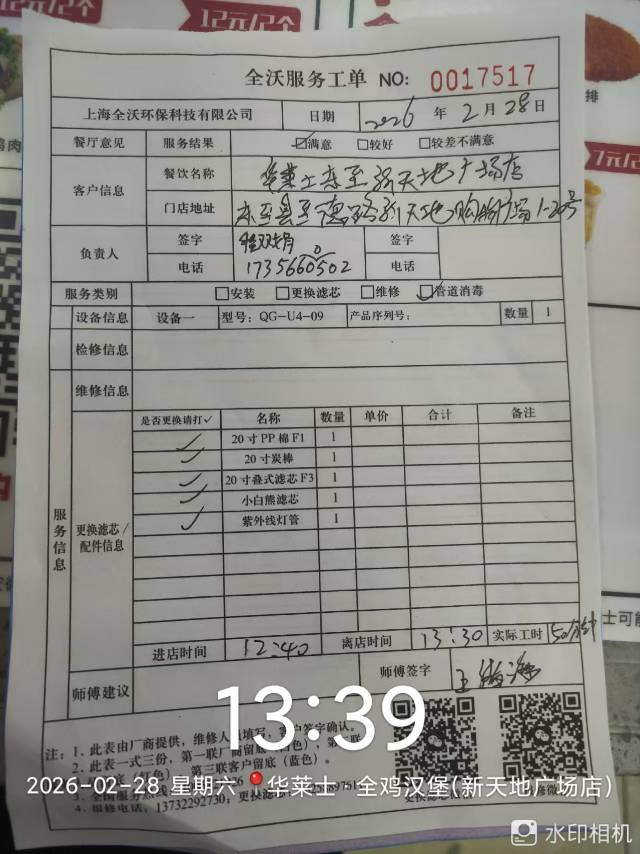 12元/2个
12元/2个
全沃服务工单 NO: 0017517
上海全沃环保科技有限公司 日期 2026年2月28日
餐厅意见 服务结果 ☑满意 □较好 □较差不满意
客户信息 餐饮名称 华莱士东至新天地广场店
门店地址 东至县至德路新天地购物广场1-20号
负责人 签字 签字
电话 17356600502 电话
服务类别 □安装 □更换滤芯 □维修 ☑管道消毒
设备信息 设备一 型号: QG-U4-09 产品序列号: 数量 1
检修信息
维修信息
服务信息
更换滤芯/配件信息
是否更换请打✓ 名称 数量 单价 合计 备注
✓ 20寸PP棉F1 1
✓ 20寸炭棒 1
✓ 20寸叠式滤芯F3 1
✓ 小白熊滤芯 1
✓ 紫外线灯管 1
进店时间 12:40 离店时间 13:30 实际工时 50分钟
师傅建议 师傅签字
13:39
注: 1. 此表由厂商提供, 维修人员填写, 客户签字确认。
2. 此表一式三份, 第一联厂商留底
第三联客户留底(蓝色)。
2026-02-28 星期六 华莱士·全鸡汉堡(新天地广场店)
13732292730;
水印相机
排
7元/
士可能